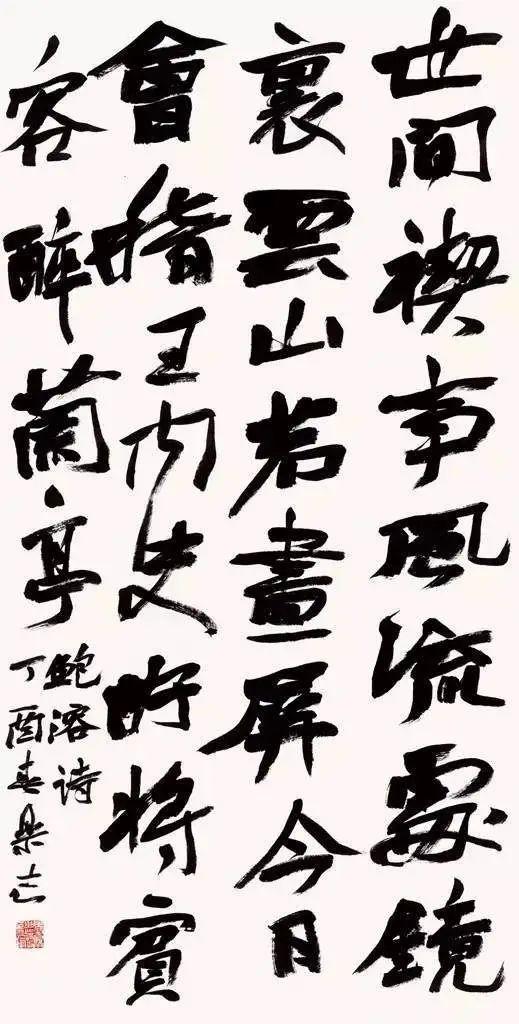 世間禊事風流處鏡
裏雲山若畫屏今日
會稽王内史好將賓
客醉蘭亭
鮑溶诗
丁酉春